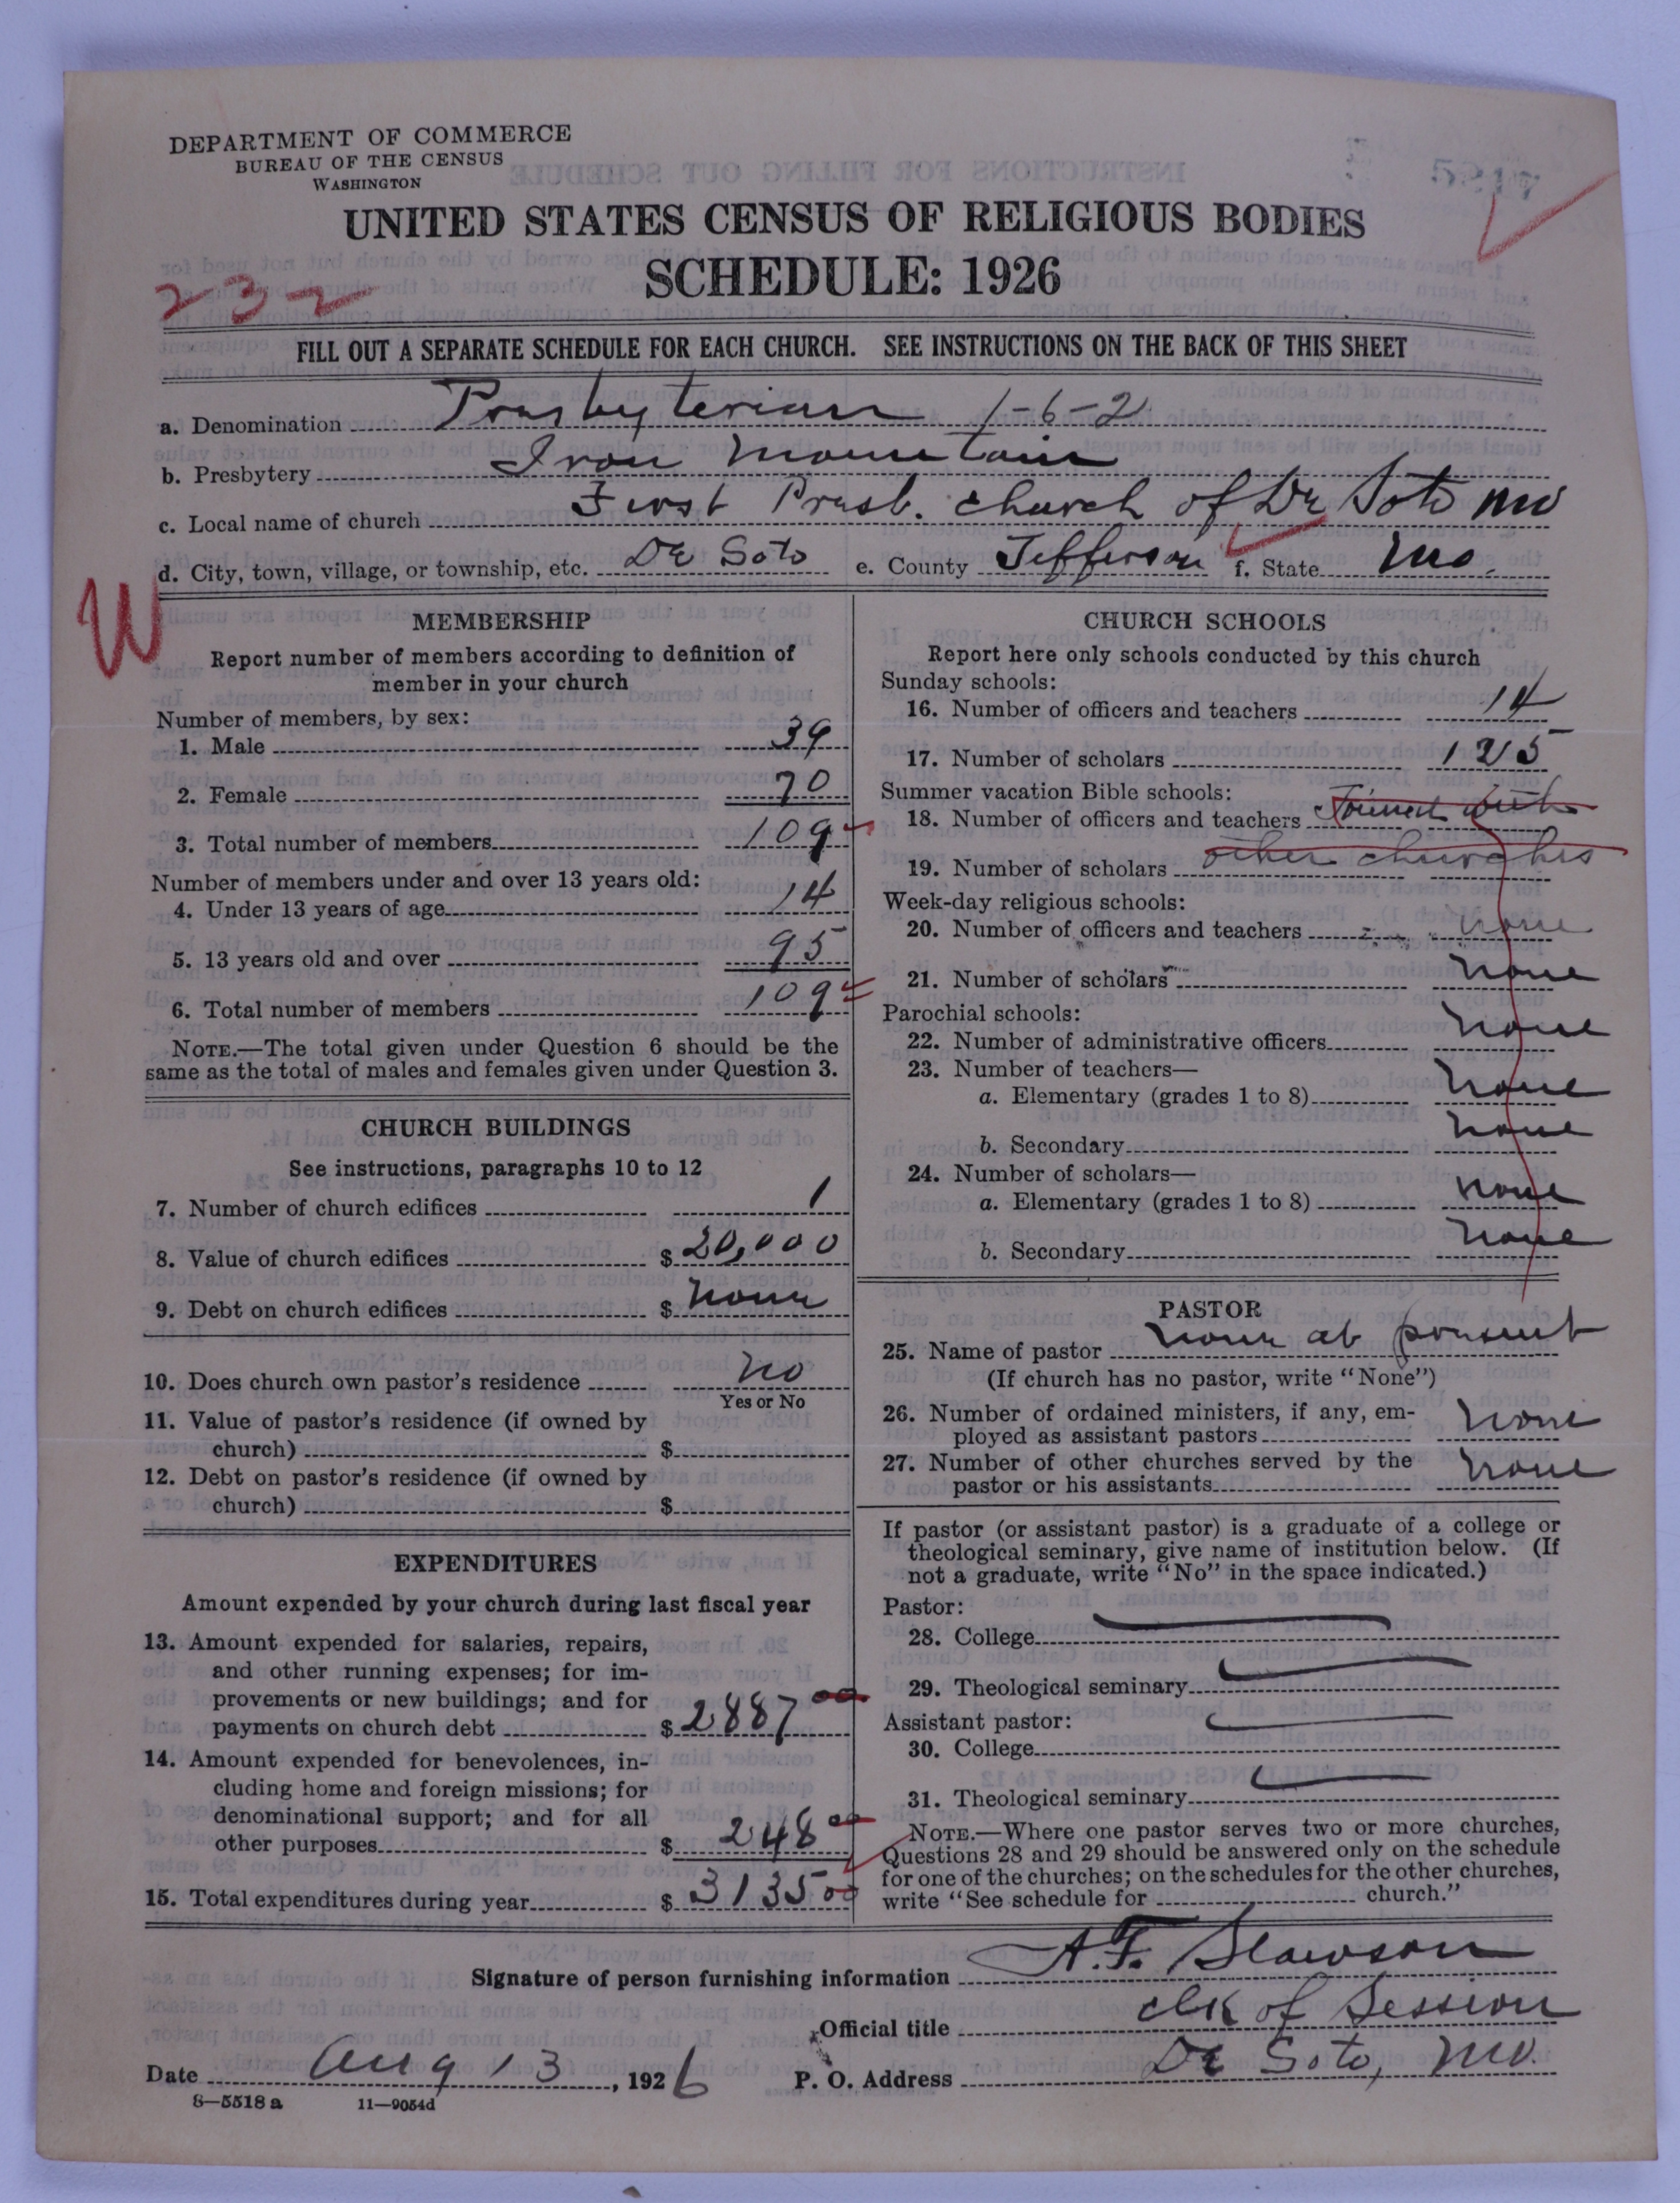 DEPARTMENT OF COMMERCE
BUREAU OF THE CENSUS
WASHINGTON
UNITED STATES CENSUS OF RELIGIOUS BODIES
SCHEDULE: 1926
232
FILL OUT A SEPARATE SCHEDULE FOR EACH CHURCH. SEE INSTRUCTIONS ON THE BACK OF THIS SHEET
a. Denomination Presbyterian 1-6-21
b. Presbytery Iron Mountain
c. Local name of church First Presb. church of De Soto Mo
d. City, town, village, or township, etc. De Soto e. County Jefferson f. State Mo.
W
MEMBERSHIP
Report number of members according to definition of
member in your church
Number of members, by sex:
1. Male 39
2. Female 70
3. Total number of members 109
Number of members under and over 13 years old:
4. Under 13 years of age 14
5. 13 years old and over 95
6. Total number of members 109
NOTE.—The total given under Question 6 should be the
same as the total of males and females given under Question 3.
CHURCH BUILDINGS
See instructions, paragraphs 10 to 12
7. Number of church edifices 1
8. Value of church edifices $ 20,000
9. Debt on church edifices $ none
10. Does church own pastor's residence no
Yes or No
11. Value of pastor's residence (if owned by
church) $
12. Debt on pastor's residence (if owned by
church) $
EXPENDITURES
Amount expended by your church during last fiscal year
13. Amount expended for salaries, repairs,
and other running expenses; for im-
provements or new buildings; and for
payments on church debt $ 2887 00
14. Amount expended for benevolences, in-
cluding home and foreign missions; for
denominational support; and for all
other purposes $ 248 00
15. Total expenditures during year $ 3135 00
CHURCH SCHOOLS
Report here only schools conducted by this church
Sunday schools:
16. Number of officers and teachers 14
17. Number of scholars 125
Summer vacation Bible schools:
18. Number of officers and teachers Joined with
19. Number of scholars other churches
Week-day religious schools:
20. Number of officers and teachers none
21. Number of scholars none
Parochial schools:
22. Number of administrative officers none
23. Number of teachers—
a. Elementary (grades 1 to 8) none
b. Secondary none
24. Number of scholars—
a. Elementary (grades 1 to 8) none
b. Secondary none
PASTOR
25. Name of pastor none at present
(If church has no pastor, write "None")
26. Number of ordained ministers, if any, em-
ployed as assistant pastors none
27. Number of other churches served by the
pastor or his assistants none
If pastor (or assistant pastor) is a graduate of a college or
theological seminary, give name of institution below. (If
not a graduate, write "No" in the space indicated.)
Pastor:
28. College
29. Theological seminary
Assistant pastor:
30. College
31. Theological seminary
NOTE.—Where one pastor serves two or more churches,
Questions 28 and 29 should be answered only on the schedule
for one of the churches; on the schedules for the other churches,
write "See schedule for church."
Signature of person furnishing information A. F. Slawson
Official title clk of Session
Date Aug 13, 1926 P. O. Address De Soto, Mo.
8—5518 a 11—9054d